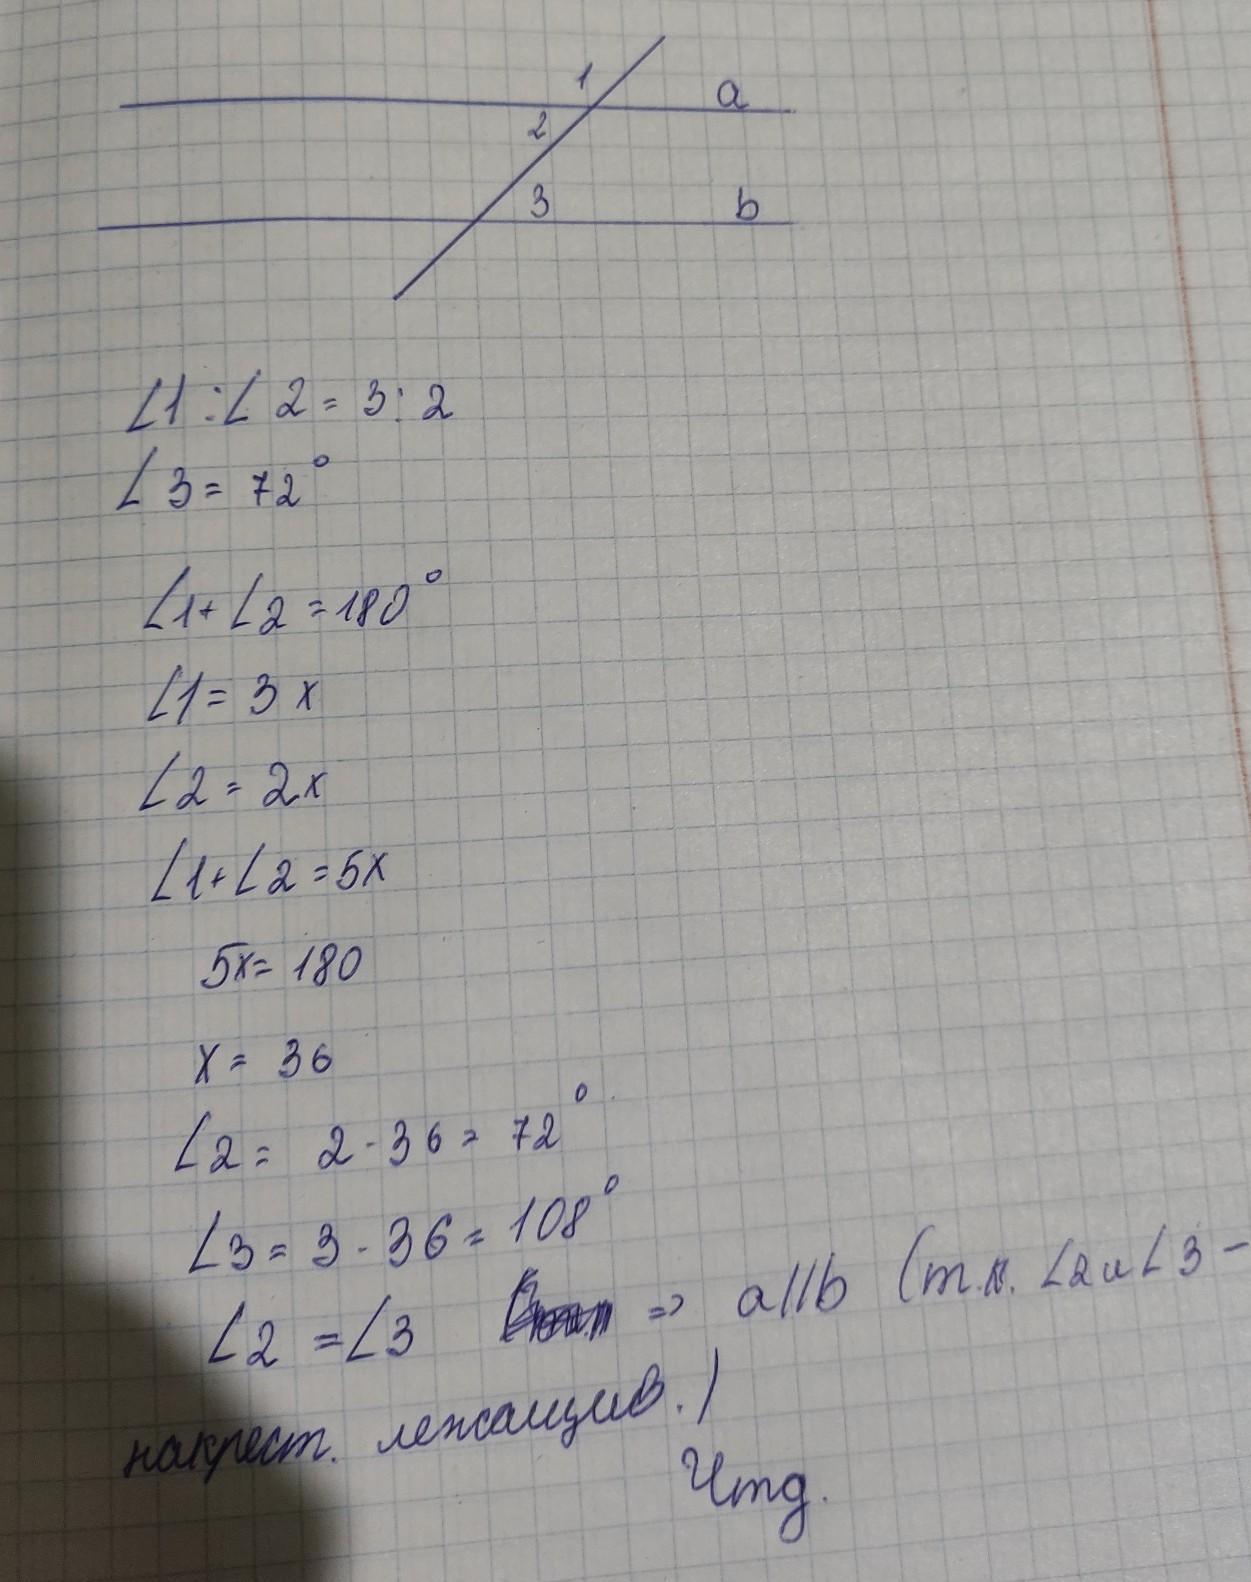 1
a
2
3
b
∠1 : ∠2 = 3 : 2
∠3 = 72°
∠1 + ∠2 = 180°
∠1 = 3x
∠2 = 2x
∠1 + ∠2 = 5x
5x = 180
x = 36
∠2 = 2 · 36 = 72°
∠3 = 3 · 36 = 108°
∠2 = ∠3 => a||b (т.к. ∠2 и ∠3 -
накрест. лежащив.)
Чтд.